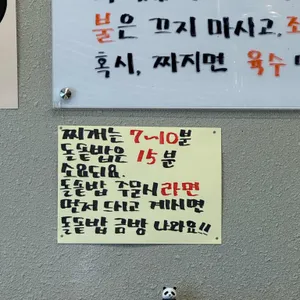 불은 끄지 마시고,
혹시, 짜지면 육수
찌개는 7~10분
돌솥밥은 15분
소요되요.
돌솥밥 주문시 라면
먼저 드시고 계시면
돌솥밥 금방 나와요!!